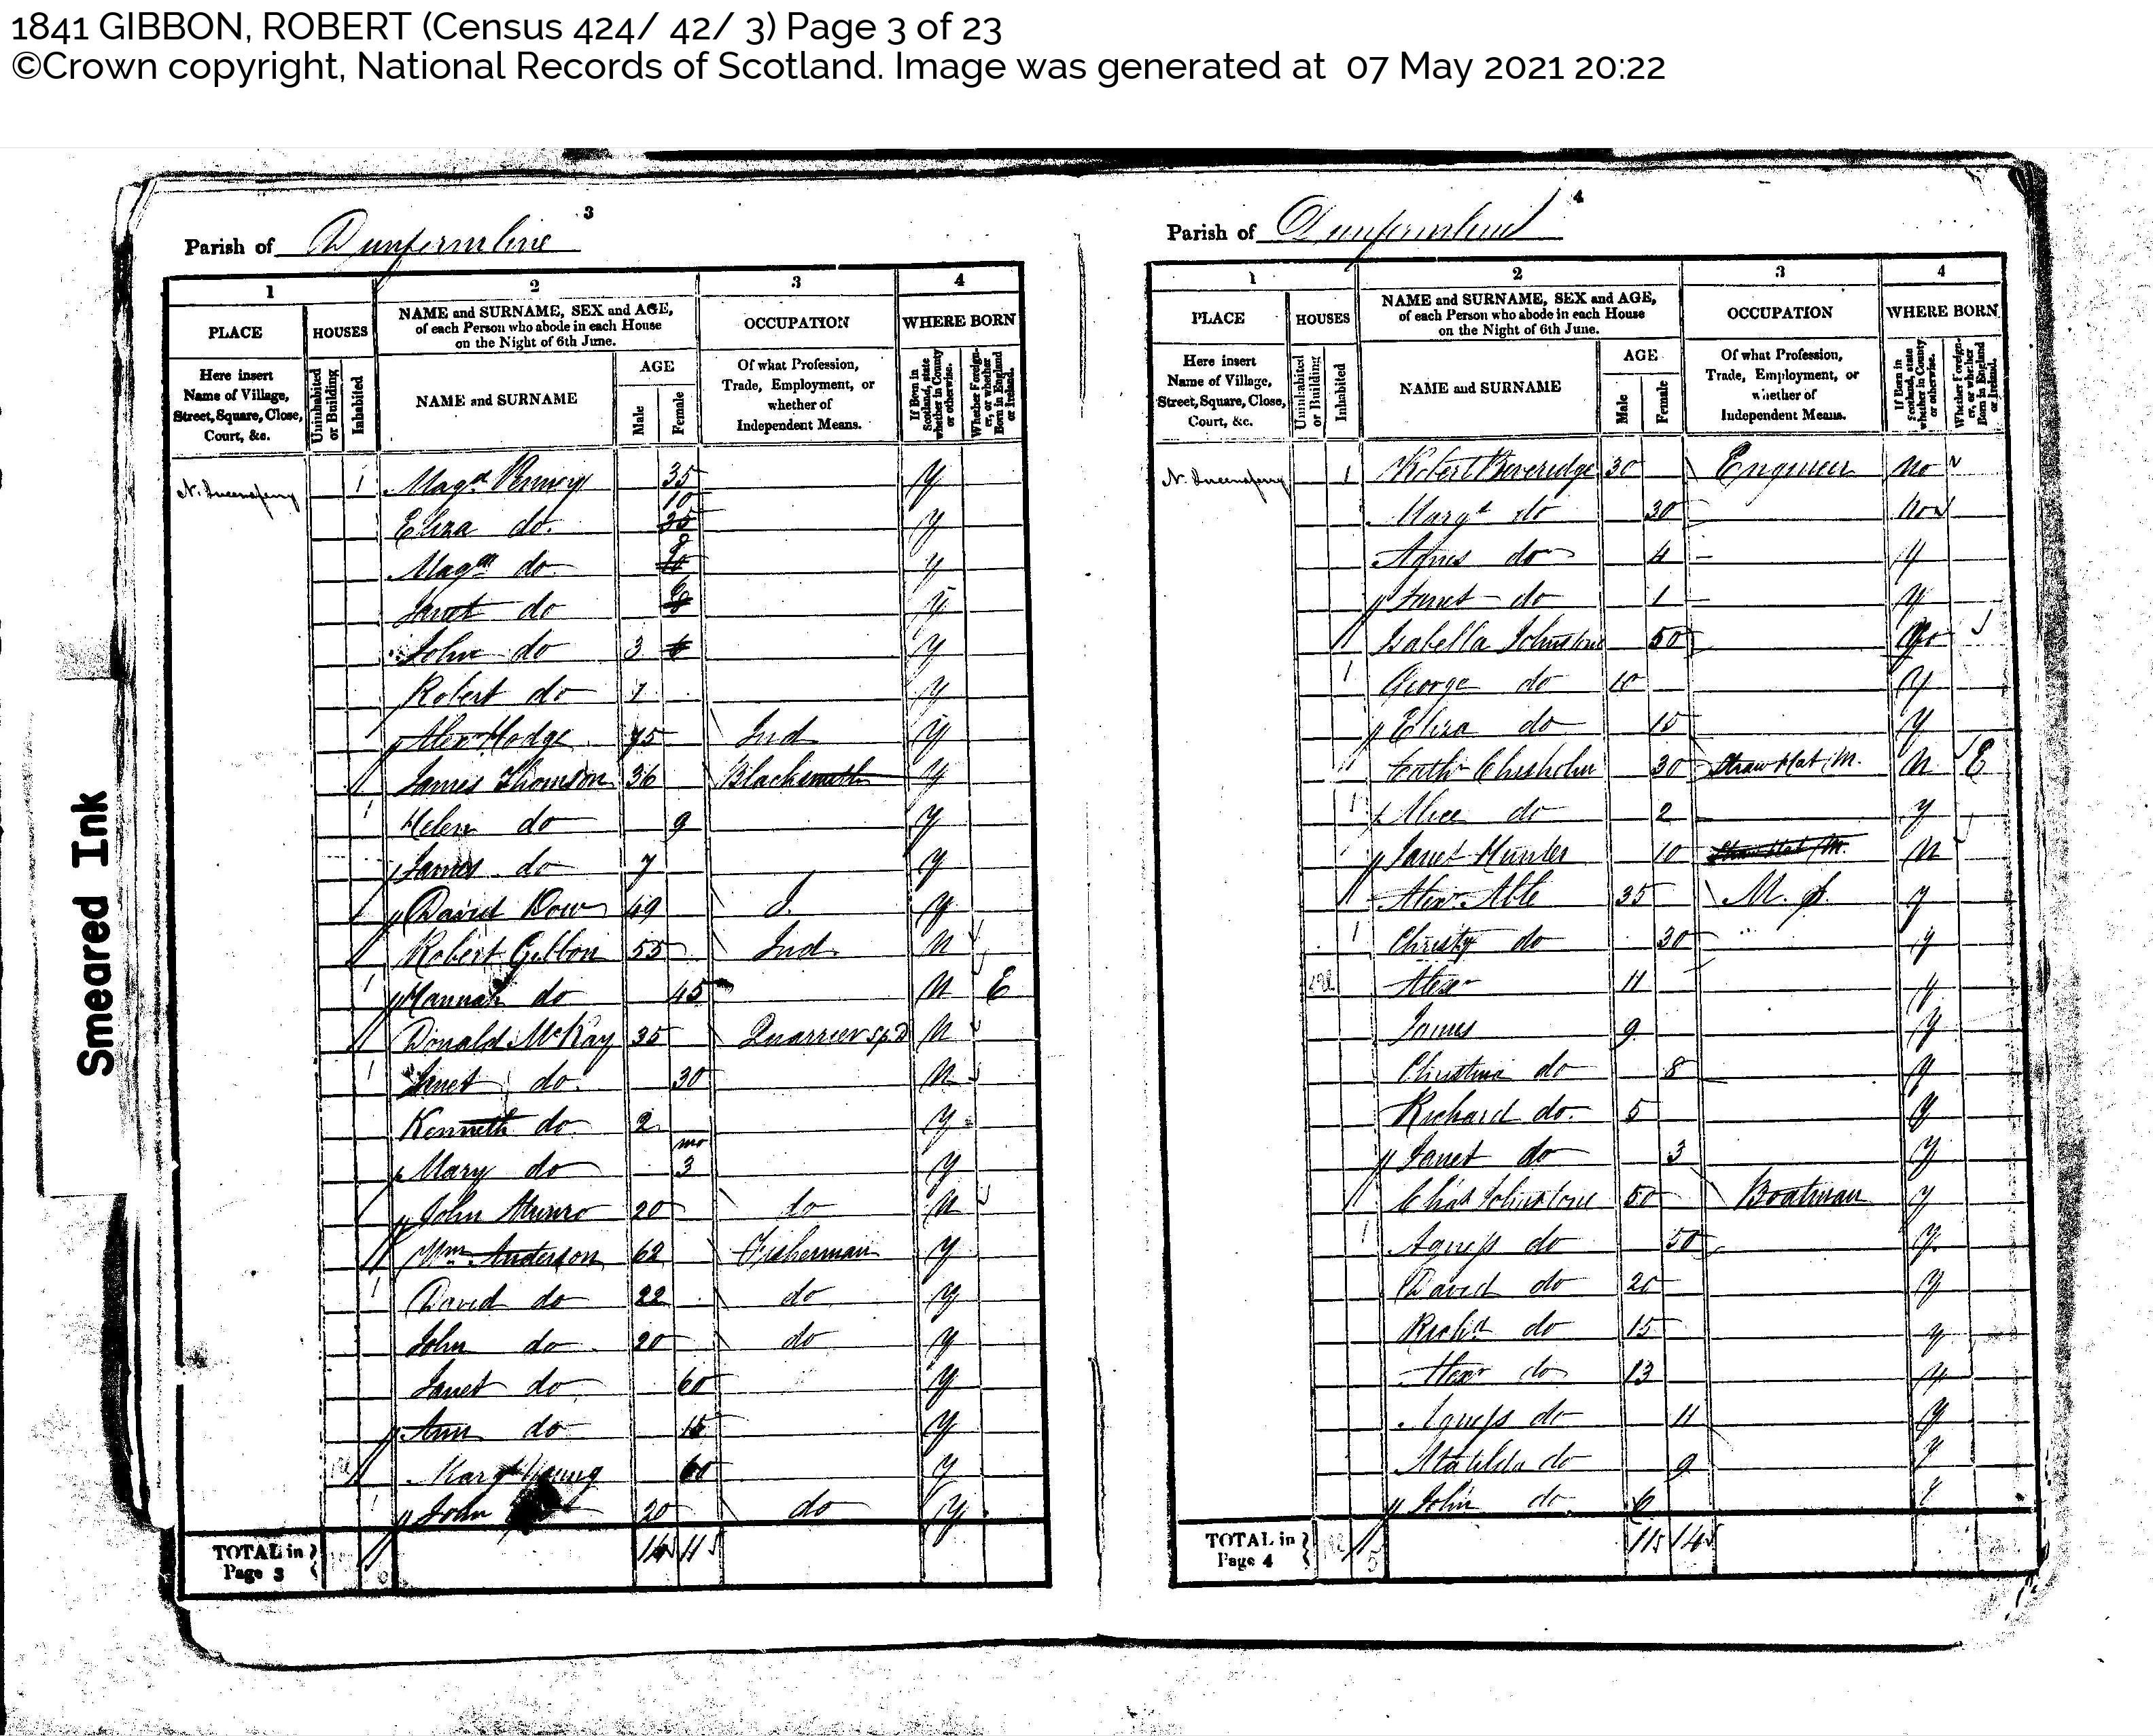 1841 GIBBON, ROBERT (Census 424/ 42/ 3) Page 3 of 23
©Crown copyright, National Records of Scotland. Image was generated at 07 May 2021 20:22
Smeared Ink
3
Parish of Dunfermline
1 2 3 4
PLACE HOUSES NAME and SURNAME, SEX and AGE, of each Person who abode in each House on the Night of 6th June. OCCUPATION WHERE BORN
Here insert Name of Village, Street, Square, Close, Court, &c. Uninhabited or Building Inhabited NAME and SURNAME AGE Male Female Of what Profession, Trade, Employment, or whether of Independent Means. If Born in Scotland, state whether in County or otherwise. Whether Foreigner, or whether Born in England or Ireland.
N. Queensferry 1 Magd 35 y
Eliza do. 10 y
Magd do 8 y
Janet do y
John do 3 y
Robert do 1 y
Alexr Hodge 75 Ind y
James Thomson 36 Blacksmith y
1 Helen do 9 y
James do 7 y
David Dow 49 J. y
Robert Gibbon 55 Ind N
1 Hannah do 45 N E
Donald McKay 35 Quarrier N
1 Janet do. 30 N
Kenneth do 2 y
Mary do mo 3 y
John Munro 20 do N
Wm Anderson 62 Fisherman y
1 David do 22 do y
John do 20 do y
Janet do 60 y
Ann do 15 y
Margt Young 60 y
1 John 20 do y
TOTAL in Page 3 14 11
4
Parish of Dunfermline
1 2 3 4
PLACE HOUSES NAME and SURNAME, SEX and AGE, of each Person who abode in each House on the Night of 6th June. OCCUPATION WHERE BORN
Here insert Name of Village, Street, Square, Close, Court, &c. Uninhabited or Building Inhabited NAME and SURNAME AGE Male Female Of what Profession, Trade, Employment, or whether of Independent Means. If Born in Scotland, state whether in County or otherwise. Whether Foreigner, or whether Born in England or Ireland.
N. Queensferry 1 Robert Beveridge 30 Engineer No
Margt do 30 No
Agnes do 4 y
Janet do 1 y
Isabella Johnstone 50
1 George do 10 y
Eliza do 15 y
Cathn Chisholm 30 Straw Hat M. N E
1 Alice do 2 y
Janet Hunter 10 Straw Hat M. N
Alexr Able 35 M. S. y
1 Christy do 30 y
Alexr 11 y
James 9 y
Christina do 8 y
Richard do. 5 y
Janet do 3 y
Chas Johnstone 50 Boatman y
1 Agness do 50 y
David do 20 y
Richd do 15 y
Alexr do 13 y
Agness do 11 y
Matilda do 9 y
John do. 6 y
TOTAL in Page 4 5 11 14